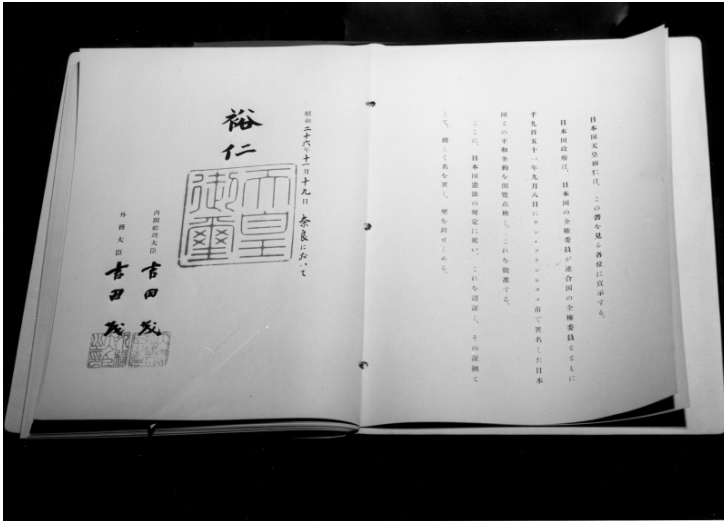 日本国天皇裕仁は、この書を見る各位に宣示する。
日本国政府は、日本国の全権委員が連合国の全権委員とともに
千九百五十一年九月八日にサン・フランシスコ市で署名した日本
国との平和条約を閲覧点検し、これを批准する。
ここに、日本国憲法の規定に従い、これを認証し、その証拠と
して、親しく名を署し、璽を鈐せしめる。
裕仁
天皇御璽
昭和二十六年十一月十九日 奈良において
内閣総理大臣 吉田茂
外務大臣 吉田茂